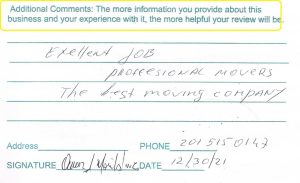 Additional Comments: The more information you provide about this
business and your experience with it, the more helpful your review will be.
Exellent JOB
proffesional movers
The best moving company
Address PHONE 201 515 0147
SIGNATURE DATE 12/30/21